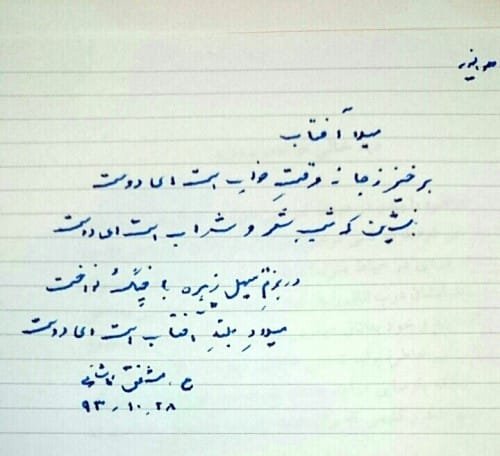 هو الحمید
میلاد آفتاب
برخیز ز جا نه وقتِ خواب است ای دوست
بنشین که شبِ شعر و شراب است ای دوست
در بزمِ سهیل زهره با چنگ نواخت
میلادِ بلندِ آفتاب است ای دوست
ع. مشفق کاشانی
۹۳-۱۰-۲۸